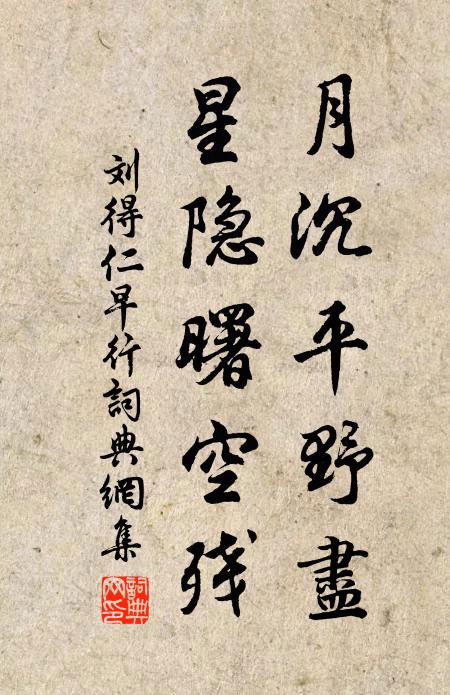 月沉平野盡
星隐曙空残
刘得仁早行詞典網集
詞典网印